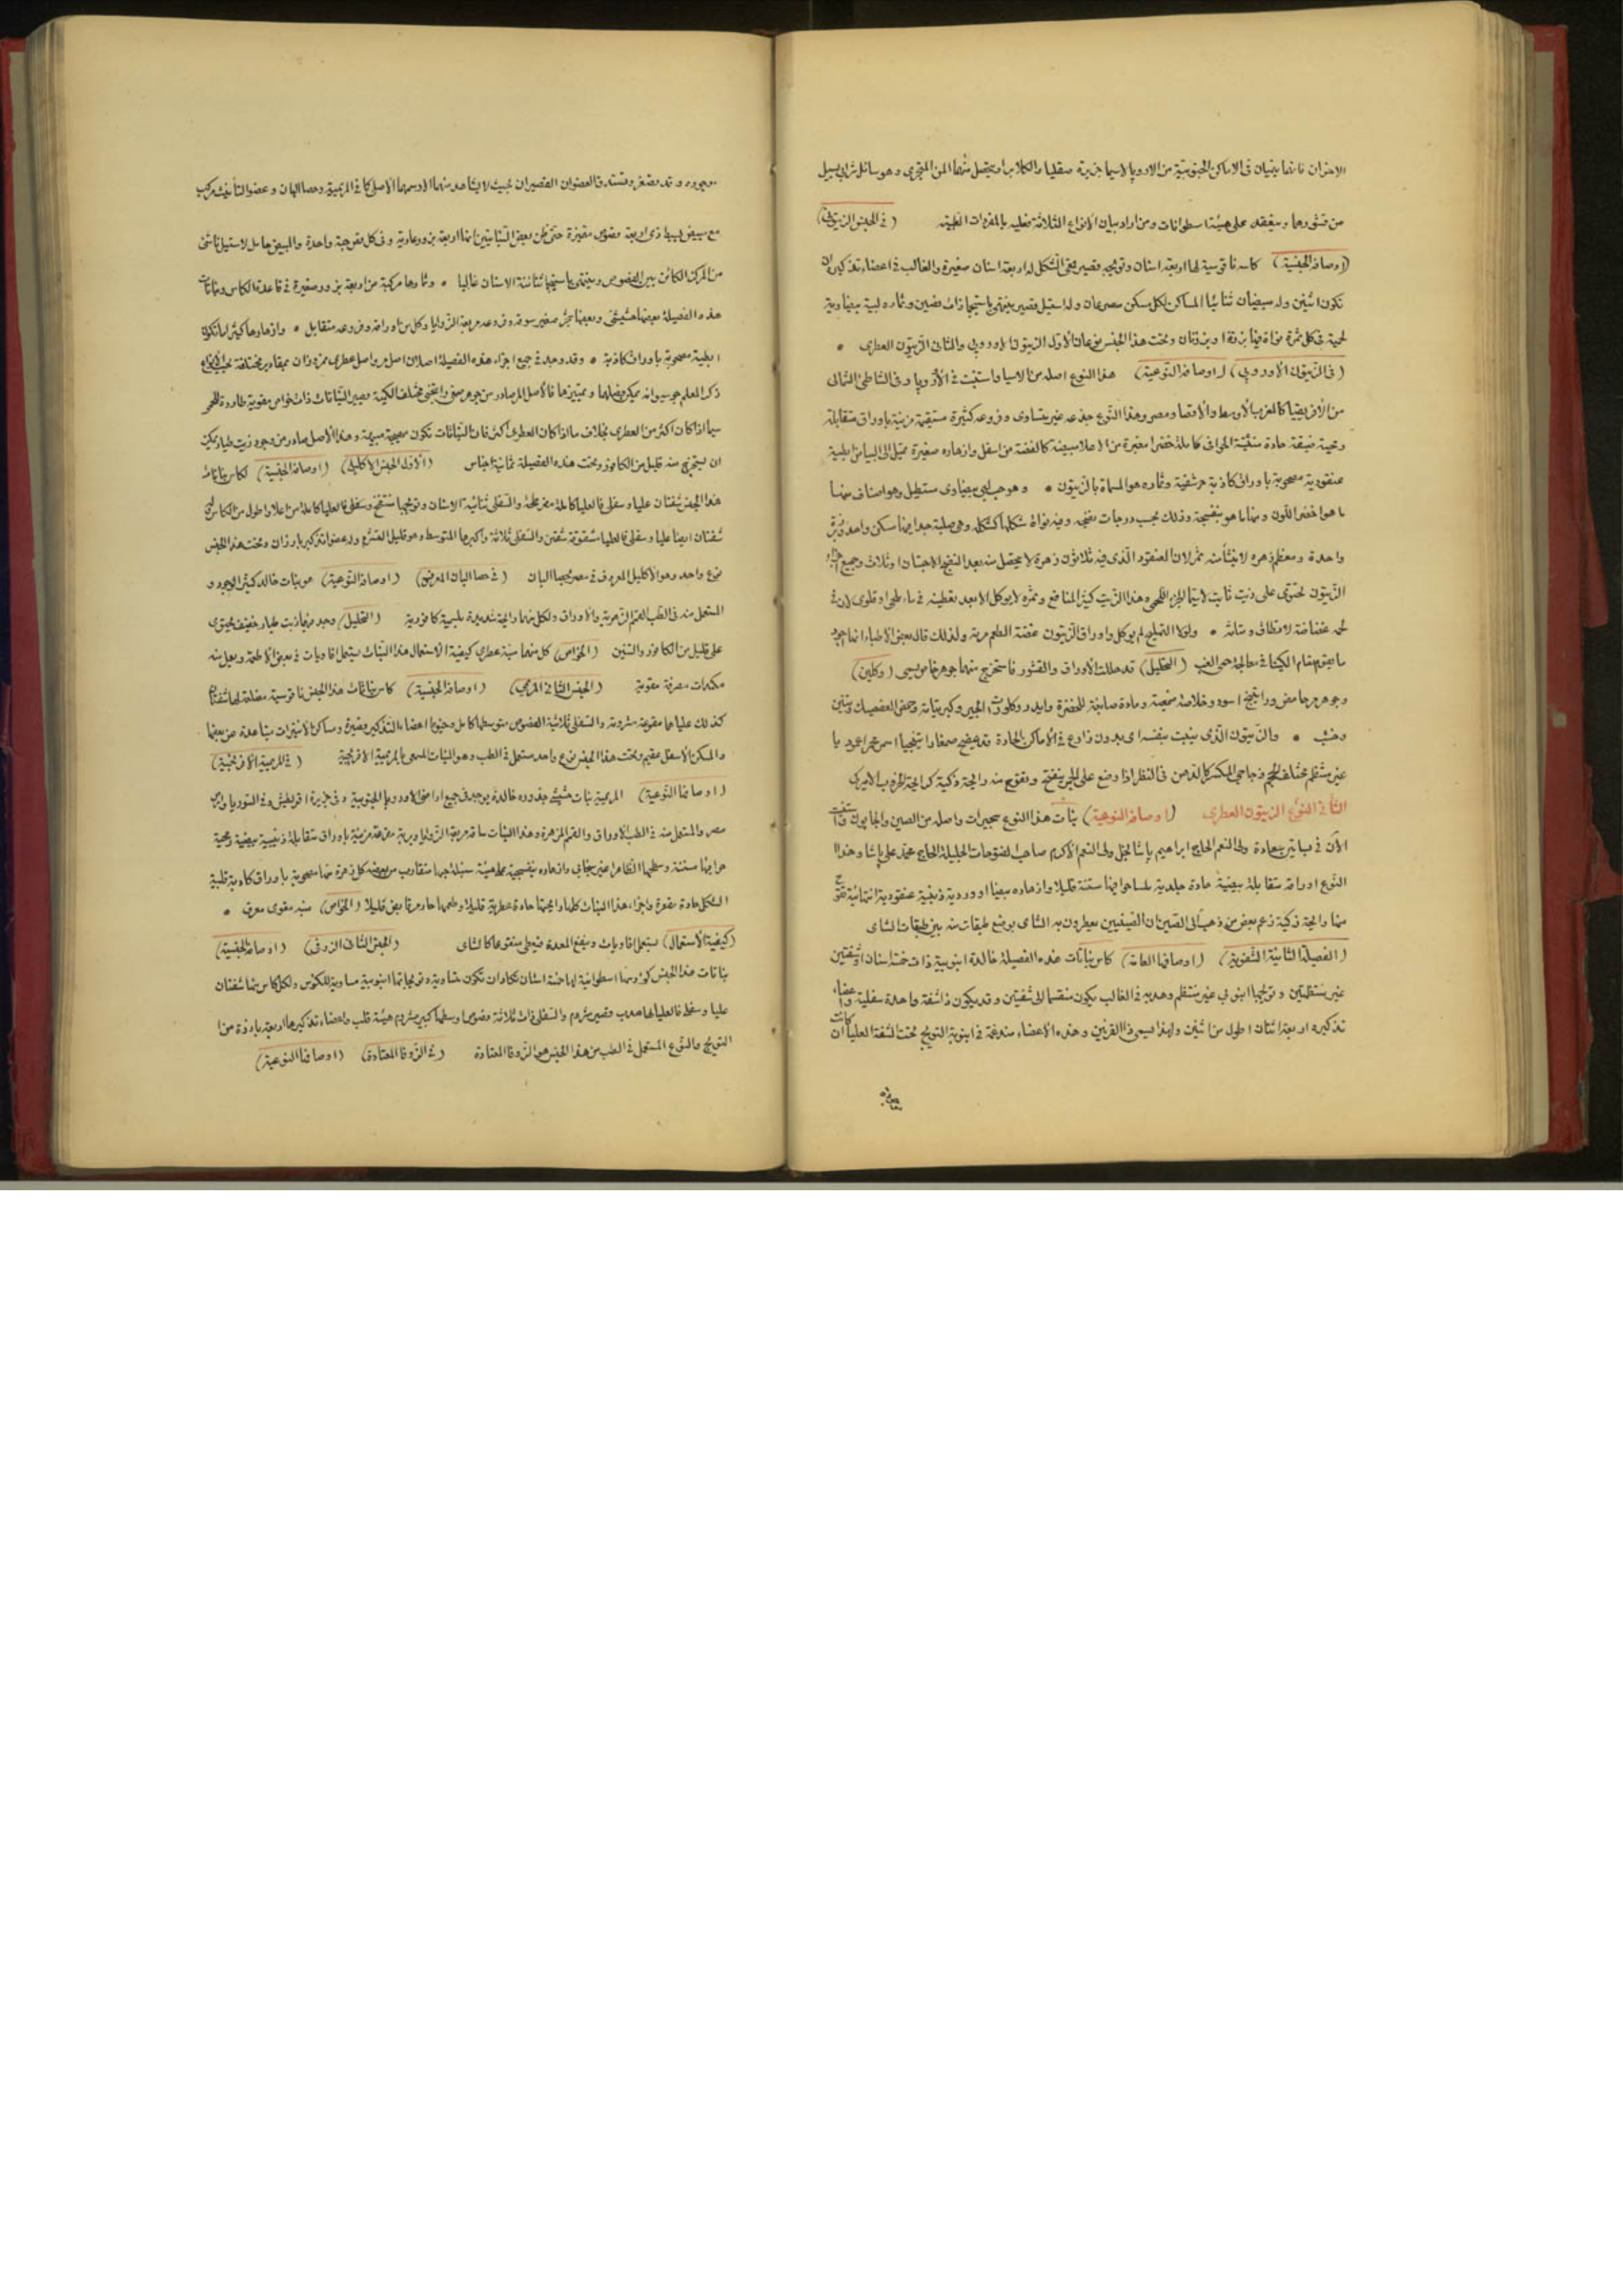 الاخران فانهما ينبتان فى الاماكن الجنوبية من الاوروپا لاسيما جزيرة صقليا والكلابرا ويتحصل منهما المن المتجرى وهو سائل ترابى يسيل
من قشورها وينعقد على هيئة اسطوانات ومن اراد بيان الانواع الثلاثة فعليه بالمفردات الطبية (فى الجنس الزيتونى)
(اوصافه الجنسية) كاسه ناقوسية لها اربعة اسنان وتويجه قصير الشكل له اربعة اسنان صغيرة والغالب فى اعضاء تذكيره ان
تكون اثنين وله مبيضان ثنائيا المساكن لكل مسكن وله استيل قصير ينتهى باستيجما ذات فصين وثماره لبية بيضاوية
لحمية فى كل ثمرة نواة فيها بزرة او بزرتان وتحت هذا الجنس نوعان الاول الزيتون الاوروپى والثانى الزيتون العطرى
(فى الزيتون الاوروپى) (اوصافه النوعية) هذا النوع اصله من الاسيا واستنبت فى الاوروپا وفى الشاطئ الشمالى
من الافريقيا كالغرب الاوسط والاقصا ومصر وهذا النوع جذعه غير متساوى وفروعه كثيرة مستقيمة مزينة باوراق متقابلة
ضيقة حادة الحوافى كاملة خضرا مغبرة من الاعلا مبيضة كالفضة من اسفل وازهاره صغيرة تميل الى البياض ابطية
عنقودية مصحوبة باوراق كاذبة حرشفية وثماره هو المسماة بالزيتون وهو حب لبى بيضاوى مستطيل وهو اصناف منها
ما هو اخضر اللون ومنها ما هو بنفسجية وذلك بحسب درجات نضجه وفيه نواة شكلها كشكله وهى صلبة جدا فيها مسكن واحد وبزرة
واحدة ومعظم زهره لا ينشأ منه ثمر لان العنقود الذى فيه ثلاثون زهرة لا يتحصل منه بعد النضج الا حبتان او ثلاث وجميع اجزاء
الزيتون تحتوى على زيت ثابت لاسيما الجزء اللحمى وهذا الزيت كثير المنافع وثمره لا يوكل الا بعد تعطينه فى ماء ملحى او قلوى لان فى
لحمه غضاضة لا تطاق ولولا التمليح لم يوكل واوراق الزيتون عفصة الطعم مرة ولذلك قال بعض الاطباء انها اجود
ما يقوم مقام الكينا فى معالجة حمى الغب (التحليل) قد حللت الاوراق والقشور فاستخرج منها جوهر خاص يسمى (وكلين)
وجوهر مر حامض وراتينج اسود وخلاصة صمغية ومادة صابغة للخضرة وايدروكلورات الجير وكبريتاته وحمض العفصيك وتنين
وخشب والزيتون الذى ينبت بنفسه اى بدون زارع فى الاماكن الحارة قد ينضح صمغا راتينجيا اسمر محمرا
غير منتظم مختلف الحجم زجاجى المكسر كالدهن فى النظر اذا وضع على الجمر ينتفخ وتفوح منه رائحة ذكية كرائحة الخروب الاميركى
الثانى النوع الزيتون العطرى (اوصافه النوعية) نبات هذا النوع شجيرات واصله من الصين والجاپون واستنبت
الآن فى بساتين سعادة ولى النعم الحاج ابراهيم پاشا نجل ولى النعم الاكرم صاحب الفتوحات الجليلة الحاج محمد على پاشا وهذا
النوع اوراقه متقابلة بيضية حادة جلدية ملسا حوافيها مسننة قليلا وازهاره بيضا او وردية عنقودية انتهائية تفوح
منها رائحة ذكية زعم بعض من ذهب الى الصين ان الصينيين يعطرون به الشاى بوضع طبقات منه بين طبقات الشاى
(الفصيلة الثانية الشفوية) (اوصافها العامة) كاس نباتات هذه الفصيلة خالدة انبوبية ذات خمسة اسنان او شفتين
غير منتظمتين وتويجها انبوبى غير منتظم وهدبه فى الغالب يكون منقسما الى شفتين وقد يكون ذا شفة واحدة سفلية واعضاء
تذكيره اربعة اثنان اطول من اثنين ولهذا يسمى ذا القرنين وهذه الاعضاء مندغمة فى انبوبة التويج تحت الشفة العليا ان كانت
موجودة وقد تصغر وتستدق العضوان القصيران بحيث لا يشاهد منهما الا رسمهما الاصلى كما فى المريمية وحصا البان وعضو التأنيث مركب
مع مبيض بسيط ذى اربعة فصوص مقعرة حتى ظن بعض النباتيين انها اربعة بزور عارية وفى كل فص حبة واحدة والمبيض حامل لاستيل ناشئ
من المركز الكائن بين الفصوص وينتهى باستيجما ثنائية الاسنان غالبا وثمارها مركبة من اربعة بزور صغيرة فى قاعدة الكاس ونباتات
هذه الفصيلة بعضها حشيشى وبعضها شجر صغير سوقه وفروعه مربعة الزوايا وكل من اوراقه وفروعه متقابل وازهارها كثيرا ما تكون
ابطية مصحوبة باوراق كاذبة وقد وجد فى جميع اجزاء هذه الفصيلة اصلان اصل مر واصل عطرى ممزوزان بمقادير مختلفة بحسب الانواع
سيما اذا كان اكثر من العطرى بخلاف ما اذا كان العطرى اكثر فان النباتات تكون مهيجة منبهة وهذا الاصل صادر من وجود زيت طيار يمكن
ان يستخرج منه قليل من الكافور وتحت هذه الفصيلة ثمانية اجناس (الاول الجنس الاكليلى) (اوصافه الجنسية) لكاس نباتات
هذا الجنس شفتان عليا وسفلى فالعليا كاملة مفرطحة والسفلى ثنائية الاسنان وتويجها منتفخ
شفتان ايضا عليا وسفلى فالعليا مشقوقة شقين والسفلى ثلاثة واكبرها المتوسط وهو قليل التشرم وله عضوا تذكير بارزان وتحت هذا الجنس
نوع واحد وهو الاكليل المعروف فى مصر بحصا البان (فى حصا البان المعروف) (اوصافه النوعية) هو نبات خالد كثير الوجود و
المستعمل منه فى الطب القمم الزهرية والاوراق ولكل منهما رائحة شديدة بلسمية كافورية (التحليل) وجد فيها زيت طيار خفيف يحتوى
على قليل من الكافور والتنين (الخواص) كل منهما منبه عطرى كيفية الاستعمال هذا النبات يستعمل افاويات فى بعض الاطعمة ويعمل منه
مكمدات مصرفة مقوية (الجنس الثانى المريمى) (اوصافه الجنسية) كاس نباتات هذا الجنس ناقوسية مضلعة لها شفتان
كذلك علياها مقوسة مشرومة والسفلى ثلاثية الفصوص متوسطها كامل وخيوط اعضاء التذكير قصيرة ومساكن الانتيرات متباعدة عن بعضها
والمسكن الاسفل عقيم وتحت هذا الجنس نوع واحد مستعمل فى الطب وهو النبات المسمى بالمريمية الافرنجية (فى المريمية الافرنجية)
(اوصافها النوعية) المريمية نبات خشبى جذوره خالدة يوجد فى جميع اراضى الاوروپا الجنوبية وفى جزيرة اقريطش وفى السوريا وبر
مصر والمستعمل منه فى الطب الاوراق والقمم المزهرة وهذا النبات ساقه مربعة الزوايا وبرية متفرعة مزينة باوراق متقابلة ذنيبية بيضية
حوافيها مسننة وسطحها الظاهر غير متجانس وازهاره بنفسجية على هيئة سنبلة جدا متقارب من بعضه كل زهرة منها مصحوبة باوراق كاذبة قلبية
الشكل حادة مقعرة واجزاء هذا النبات كلها رائحتها حادة عطرية قليلا وطعمها حار مر قابض قليلا (الخواص) منبه مقوى معرق
(كيفية الاستعمال) يستعمل افاويات وينفع المعدة فيعطى منقوعا كالشاى (الجنس الثانى الزوفى) (اوصافه الجنسية)
نباتات هذا الجنس كؤوسها اسطوانية لها خمسة اسنان تكاد ان تكون متساوية وتويجاتها انبوبية مساوية للكؤس ولكل كاس منها شفتان
عليا وسفلى فالعليا لها هدب وقصير مشروم والسفلى ذات ثلاثة فصوص اوسطها كبير مشروم بهيئة قلب واعضاء تذكيرها اربعة بارزة من
التويج والنوع المستعمل فى الطب من هذا الجنس هو الزوفا المعتادة (فى الزوفا المعتادة) (اوصافها النوعية)